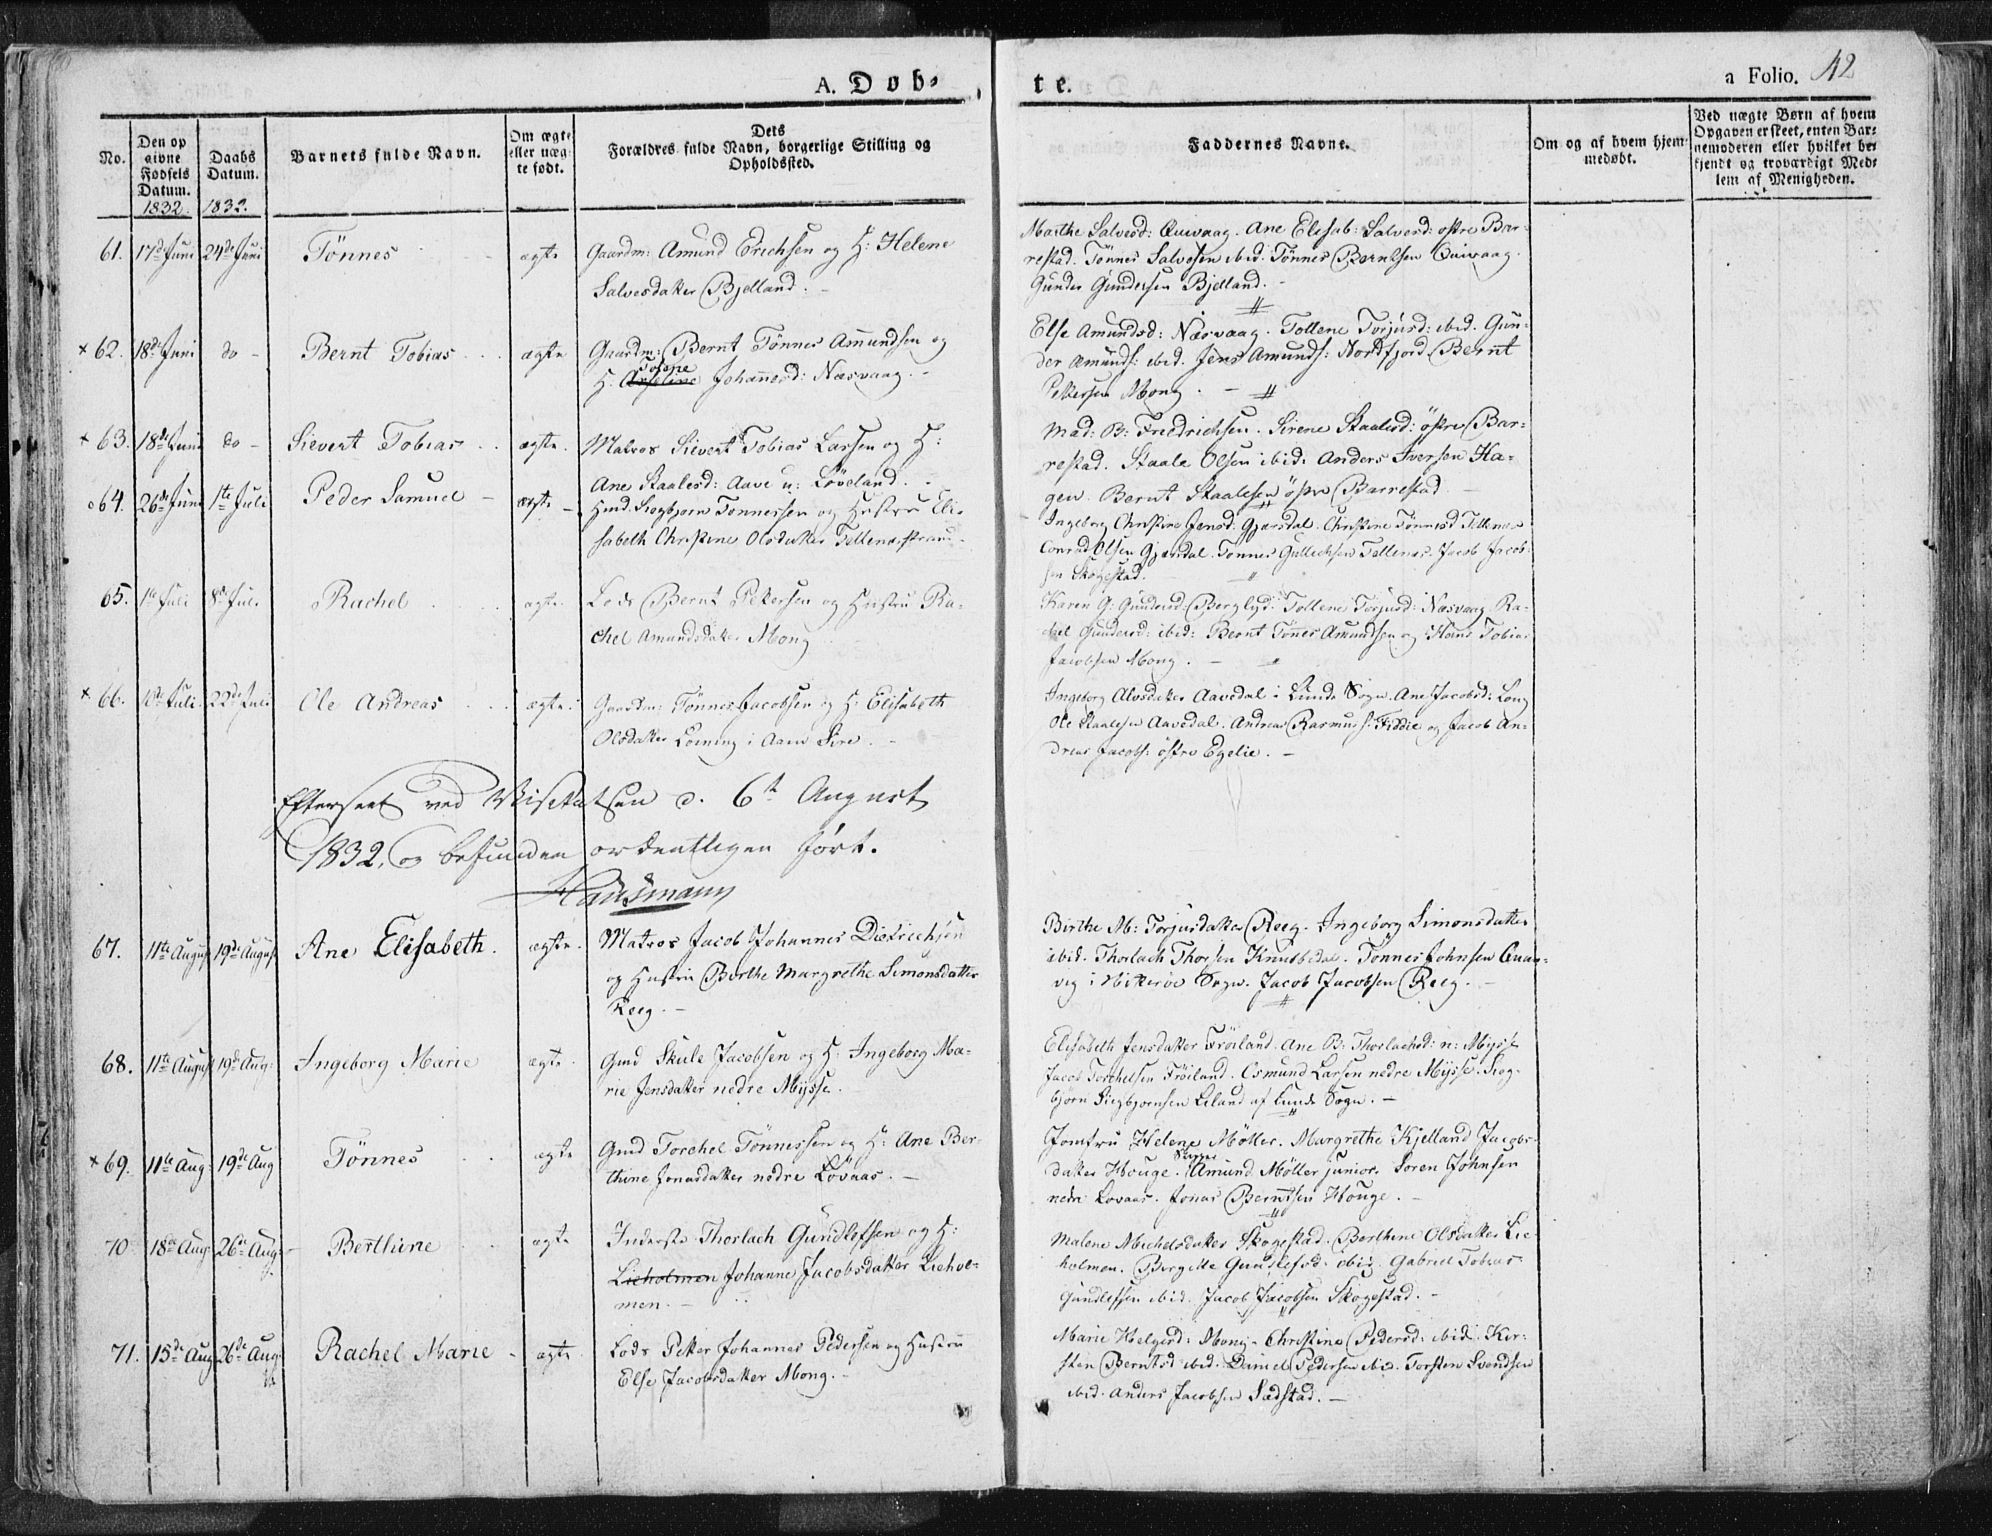 A. Døb-
te.
a Folio. 42
No.
Den op
givne
Fødsels
Datum.
1832.
Daabs
Datum.
1832.
Barnets fulde Navn.
Om ægte
eller uæg-
te født.
Dets
Forældres fulde Navn, borgerlige Stilling og
Opholdssted.
Faddernes Navne.
Om og af hvem hjem-
medøbt.
Ved uægte Børn af hvem
Opgaven er skeet, enten Bar-
nemoderen eller hvilket be-
kjendt og troværdigt Med-
lem af Menigheden.
61. 17de Juni 24de Juni Tönnes ægte Gaardm: Amund Erichsen og H: Helene
Salvesdatter Bjelland.
Marthe Salvesd: Quivaag. Ane Elisab: Salvesd: østre Bar-
restad. Tönnes Salvesen ibid. Tönnes Berntsen Quivaag.
Gunder Gundersen Bjelland.
× 62. 18de Juni do - Bernt Tobias ægte Gaardm: Bernt Tönnes Amundsen og
H: Johannesd: Næsvaag.
Else Amundsd: Næsvaag. Tollene Torjusd: ibid. Gun-
der Amunds: ibid. Jens Amunds: Nordfjord. Bernt
Pettersen Mong.
× 63. 18de Juni do - Sievert Tobias ægte. Matros Sievert Tobias Larsen og H:
Ane Staalesd: Aave u: Löveland.
Mad: B: Fredrichsen. Sirene Staalesd: østre Bar-
restad. Staale Olsen ibid. Anders Iversen Ha-
gen. Bernt Staalesen østre Barrestad.
o 64. 26de Juni 1te Juli Peder Samuel - ægte - Gmd. Siegbjørn Tönnessen og Hustru Eli-
sabeth Christine Olsdatter Tellenesstrand.
Ingeborg Christine Jensd: Gjersdal. Christine Tönnesd Tellenes
Conrad Olsen Gjersdal. Tönnes Gullichsen Tellenes. Jacob Jacob-
sen Skogestad.
65. 1te Juli 8de Juli Rachel ægte. Lods Bernt Pettersen og Hustru Ra-
chel Amundsdatter Mong
Karen G: Gundersd: Berglyd. Tollene Torjusd: Næsvaag. Ra-
chel Gundersd: ibid: Bernt Tönnes Amundsen og Hans Tobias
Jacobsen Mong.
× 66. Juli. 22de Juli Ole Andreas ægte. Gaardm: Tönnes Jacobsen og H: Elisabeth
Olsdatter Loming i Aane Sire.
Ingeborg Alvsdatter Aavedal i Lunde Sogn. Ane Jacobsd: Long
Ole Staalesen Aavedal. Andreas Rasmuss: Fidde og Jacob An-
dreas Jacobs: østre Egelie.
Efterseet ved Visitatsen d. 6te August
1832, og befunden ordentligen ført.
Hausmann
67. 11te August 19de August Ane Elisabeth. ægte. Matros Jacob Johannes Dietrichsen
og Hustru Birthe Margrethe Simonsdatter
Reeg.
Birthe M: Torjusdatter Reeg. Ingeborg Simonsdatter
ibid. Thorlach Thorsen Knutsdal. Tönnes Johnsen Quan-
vig i Hitterøe Sogn. Jacob Jacobsen Reeg.
68. 11te August 19de Aug: Ingeborg Marie ægte. Gmd Skule Jacobsen og H: Ingeborg Ma-
rie Jensdatter nedre Mysse.
Elisabeth Jensdatter Fröiland. Ane B: Thorlachsd: n: Mysse
Jacob Torchelsen Fröiland. Osmund Larsen nedre Mysse. Sieg-
björn Siegbjørnsen Leland af Lunde Sogn.
× 69. 11te Aug: 19de Aug Tönnes ægte Gmd Torchel Tönnessen og H: Ane Ber-
thine Jonasdatter nedre Lövaas.
Jomfru Helene Möller. Margrethe Kjelland Jacobs-
datter Houge. Amund Möller junior. Soren Johnsen
nedre Lovaas. Jonas Berntsen Houge.
70 18de Aug: 26de Aug: Berthine ægte Inderste Thorlach Gundlefsen og H:
Lieholmen Johanne Jacobsdatter Liehol-
men.
Malene Michelsdatter Skogestad. Berthine Olsdatter Lie-
holmen. Bergitte Gundlefsd: ibid. Gabriel Tobias
Gundlefsen ibid. Jacob Jacobsen Skogestad.
71. 15de Aug 26de Aug: Rachel Marie - ægte Lods Petter Johannes Pedersen og Hustru
Else Jacobsdatter Mong.
Marie Helgesd: Mong. Christine Pedersd: ibid. Kir-
sten Berntsd ibid. Daniel Pedersen ibid. Torsten Svendsen
ibid. Anders Jacobsen Sædstad.